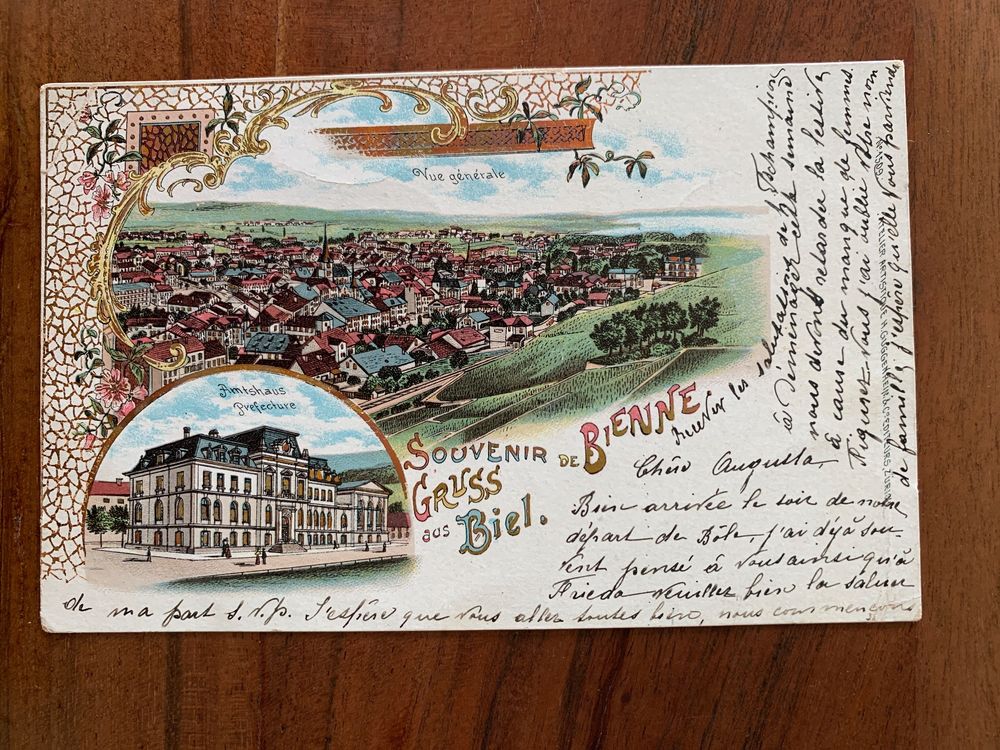 Vue générale
Amtshaus
Préfecture
SOUVENIR DE BIENNE
GRUSS
aus Biel.
Chère Augusta,
Bien arrivée le soir de notre
départ de Bôle, j'ai déjà sou-
vent pensé à vous ainsi qu'à
Frieda veuillez bien la saluer
de ma part s.v.p. J'espère que vous allez toutes bien, nous commençons
à déménager cette semaine
nous devrons retarder la lessive
à cause du manque de femmes.
vous j'ai oublié votre nom
de famille j'espère qu'elle vous parviendra
Recevez les salutations de